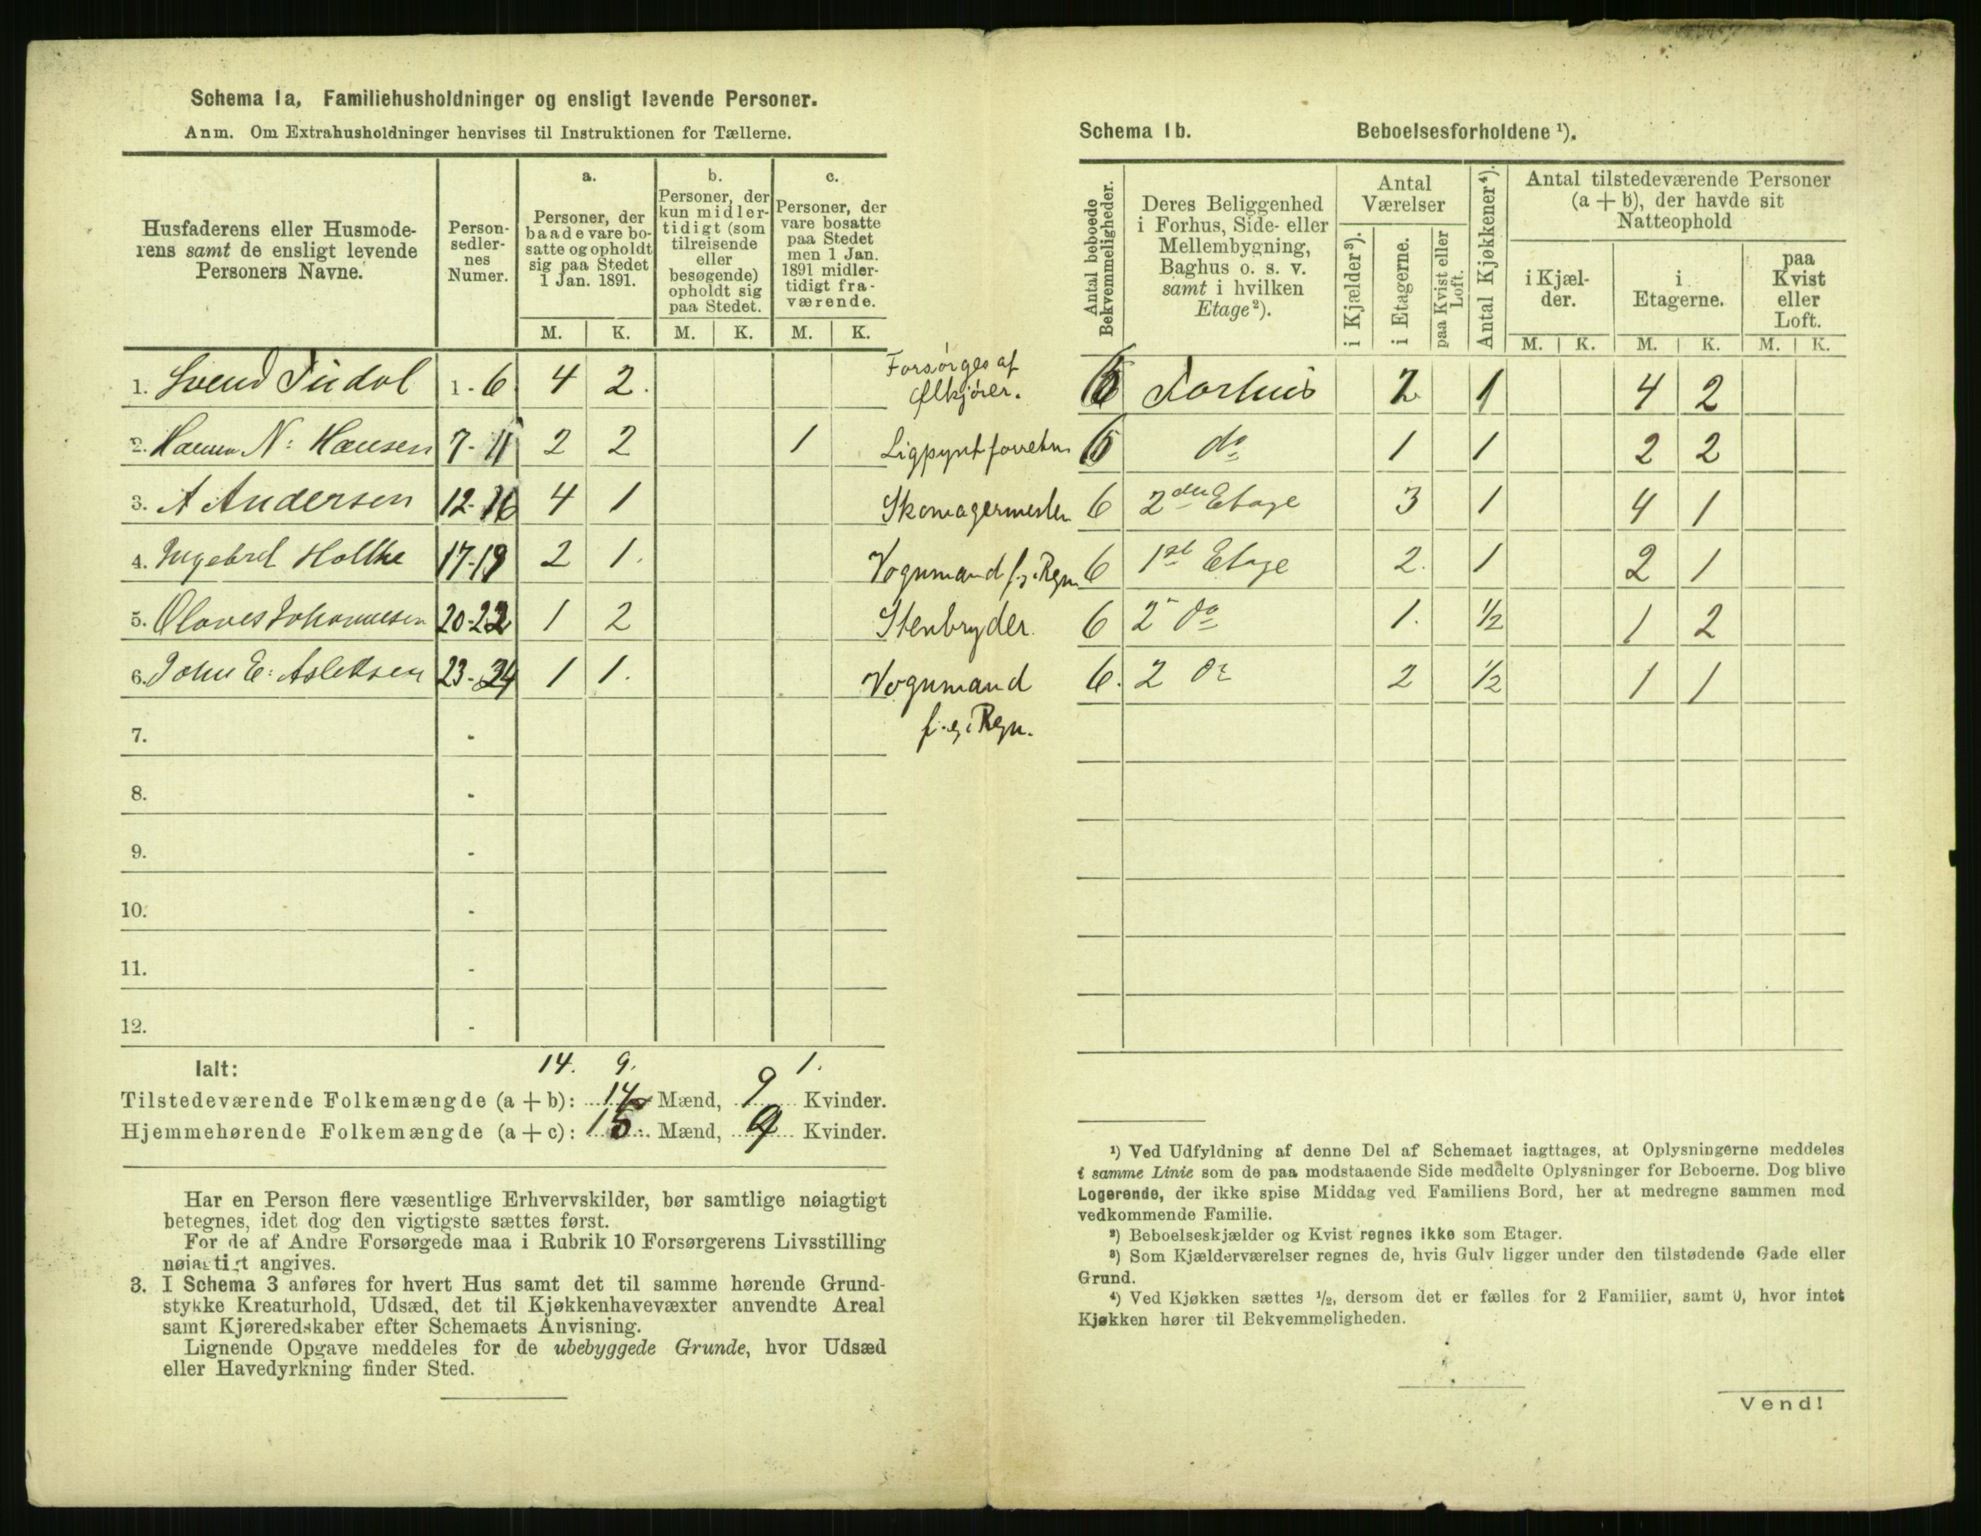 Schema 1a, Familiehusholdninger og ensligt levende Personer.
Anm. Om Extrahusholdninger henvises til Instruktionen for Tællerne.
Husfaderens eller Husmoderens samt de ensligt levende Personers Navne.
Personsedlernes Numer.
a. Personer, der baade vare bosatte og opholdt sig paa Stedet 1 Jan. 1891.
b. Personer, der kun midlertidigt (som tilreisende eller besøgende) opholdt sig paa Stedet.
c. Personer, der vare bosatte paa Stedet men 1 Jan. 1891 midlertidigt fraværende.
M. K. M. K. M. K.
1. Svend 1 - 6 4 2. Forsørges af Ølkjører.
2. N: Hansen 7 - 11 2 2 1 Ligpynt
3. A Andersen 12 - 16 4 1 Skomagermester
4. 17 - 19 2 1. Vognmand f. e. Regn
5. 20 - 22 1 2 Stenbryder.
6. John E: Aslettsen 23 - 24 1 1. Vognmand
f. e. Regn.
7. -
8. -
9. -
10. -
11. -
12. -
Ialt: 14. 9. 1.
Tilstedeværende Folkemængde (a + b): 14 Mænd, 9 Kvinder.
Hjemmehørende Folkemængde (a + c): 15 Mænd, 9 Kvinder.
Har en Person flere væsentlige Erhvervskilder, bør samtlige nøiagtigt
betegnes, idet dog den vigtigste sættes først.
For de af Andre Forsørgede maa i Rubrik 10 Forsørgerens Livsstilling
nøiagtigt angives.
3. I Schema 3 anføres for hvert Hus samt det til samme hørende Grund-
stykke Kreaturhold, Udsæd, det til Kjøkkenhavevæxter anvendte Areal
samt Kjøreredskaber efter Schemaets Anvisning.
Lignende Opgave meddeles for de ubebyggede Grunde, hvor Udsæd
eller Havedyrkning finder Sted.
Schema 1b. Beboelsesforholdene ¹).
Antal beboede Bekvemmeligheder.
Deres Beliggenhed i Forhus, Side- eller Mellembygning, Baghus o. s. v. samt i hvilken Etage ²).
Antal Værelser
i Kjælder ³).
i Etagerne.
paa Kvist eller Loft.
Antal Kjøkkener ⁴).
Antal tilstedeværende Personer (a + b), der havde sit Natteophold
i Kjælder.
i Etagerne.
paa Kvist eller Loft.
M. K. M. K. M. K.
6 Forhus 2 1 4 2
6 do 1 1 2 2
6 2den Etage 3 1 4 1
6 1st Etage 2. 1 2 1
6 2 do 1. ½ 1 2
6. 2 do 2 ½ 1 1
¹) Ved Udfyldning af denne Del af Schemaet iagttages, at Oplysningerne meddeles
i samme Linie som de paa modstaaende Side meddelte Oplysninger for Beboerne. Dog blive
Logerende, der ikke spise Middag ved Familiens Bord, her at medregne sammen med
vedkommende Familie.
²) Beboelseskjælder og Kvist regnes ikke som Etager.
³) Som Kjælderværelser regnes de, hvis Gulv ligger under den tilstødende Gade eller
Grund.
⁴) Ved Kjøkken sættes ½, dersom det er fælles for 2 Familier, samt 0, hvor intet
Kjøkken hører til Bekvemmeligheden.
Vend!